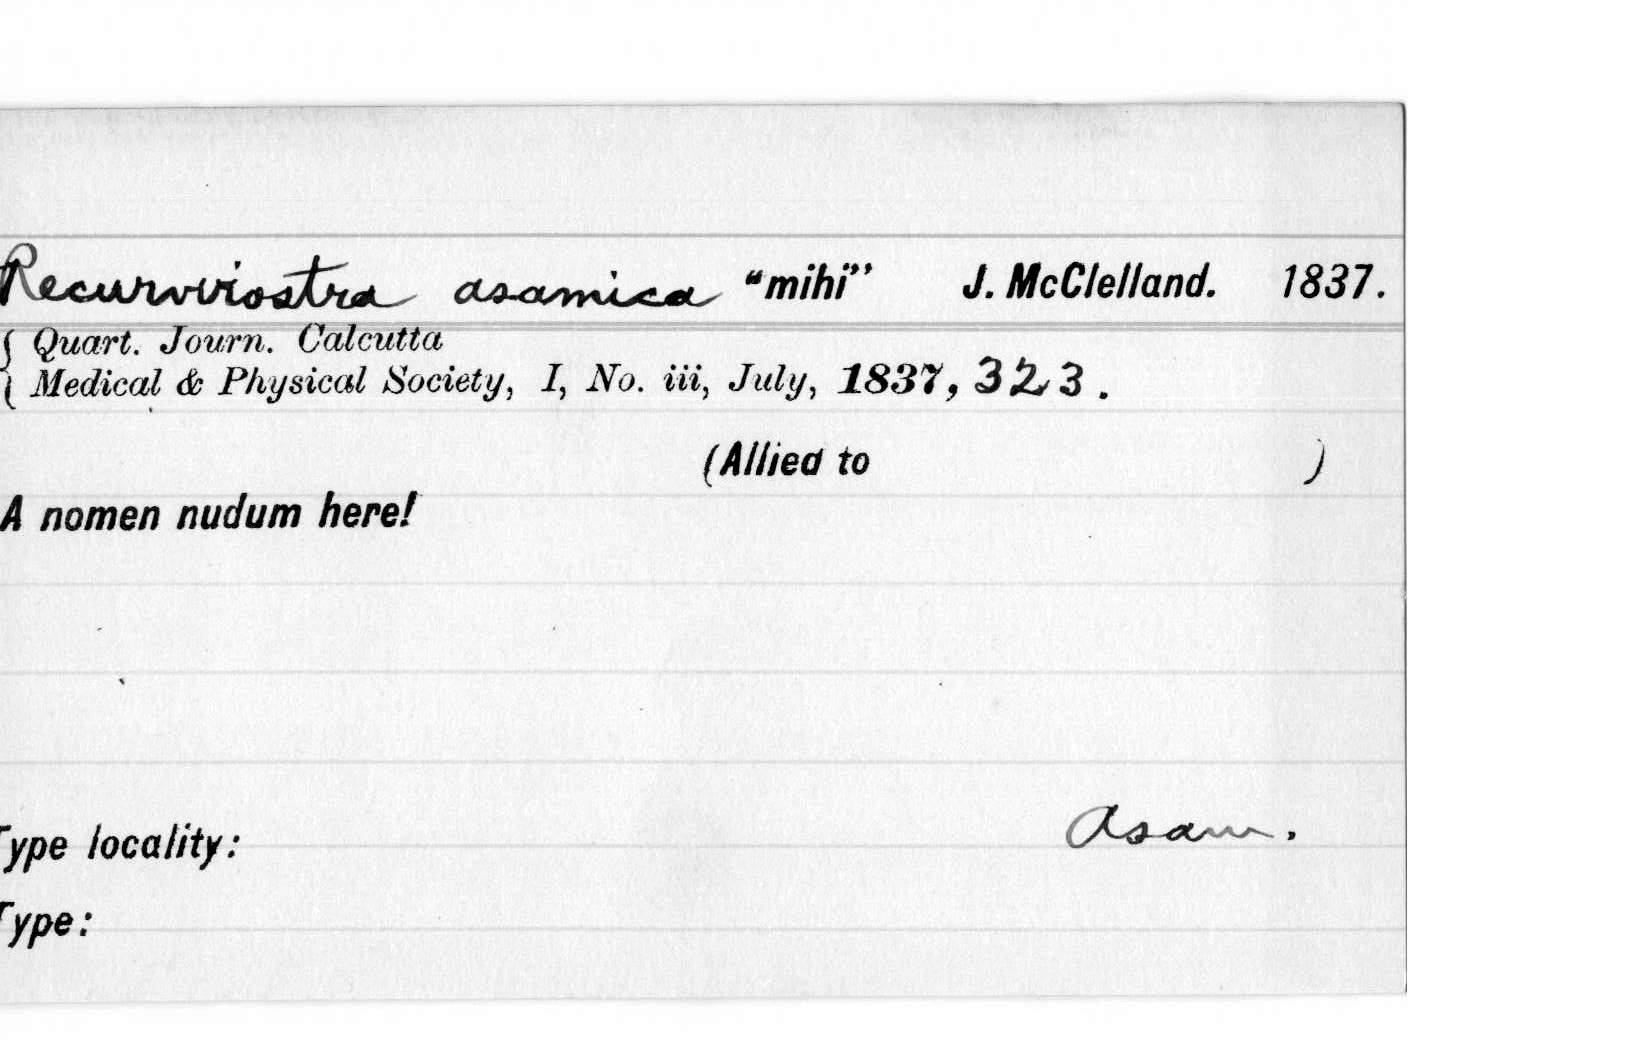 Recurviriostra asamica “mihi” J. McClelland. 1837.
Quart. Journ. Calcutta
Medical & Physical Society, I, No. iii, July, 1837, 323.
(Allied to )
A nomen nudum here!
Type locality: Asam.
Type: